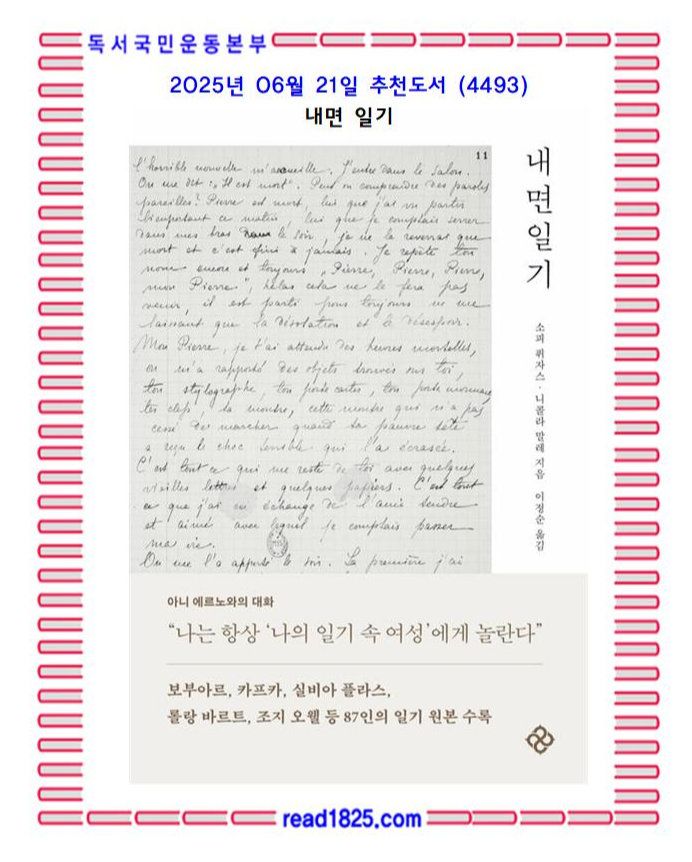 독서국민운동본부
2025년 06월 21일 추천도서 (4493)
내면 일기
11
l'horrible nouvelle m'accueille. J'entre dans le salon.
On me dit : „Il est mort". Peut on comprendre des paroles
pareilles? Pierre est mort, lui que j'ai vu partir
bien portant ce matin, lui que je comptais serrer
dans mes bras le soir, je ne le reverrai que
mort et c'est fini à jamais. Je repète ton
nom encore et toujours „Pierre, Pierre, Pierre,
mon Pierre", hélas cela ne le fera pas
venir, il est parti pour toujours ne me
laissant que la désolation et le désespoir.
Mon Pierre, je t'ai attendu des heures mortelles,
on m'a rapporté des objets trouvés sur toi,
ton stylographe, ton porte cartes, ton porte monnaie,
tes clefs, ta montre, cette montre qui n'a pas
cessé de marcher quand ta pauvre tête
a reçu le choc terrible qui l'a écrasée.
C'est tout ce qui me reste de toi avec quelques
vieilles lettres et quelques papiers. C'est tout
ce que j'ai en échange de l'ami tendre
et aimé avec lequel je comptais passer
ma vie.
On me l'a apporté le soir. La première j'ai
내면일기
소피 퓌자스·니콜라 말레 지음 이정순 옮김
아니 에르노와의 대화
“나는 항상 ‘나의 일기 속 여성’에게 놀란다”
보부아르, 카프카, 실비아 플라스,
롤랑 바르트, 조지 오웰 등 87인의 일기 원본 수록
read1825.com